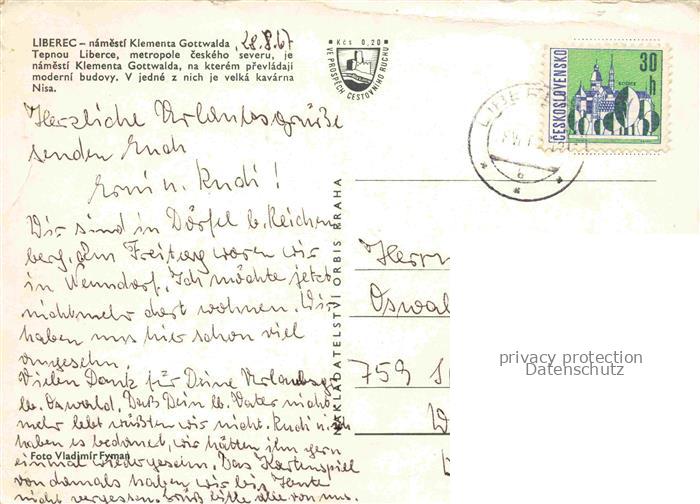 LIBEREC – náměstí Klementa Gottwalda
28.8.67
Tepnou Liberce, metropole českého severu, je
náměstí Klementa Gottwalda, na kterém převládají
moderní budovy. V jedné z nich je velká kavárna
Nisa.
Kčs 0,20
VE PROSPĚCH CESTOVNÍHO RUCHU
ČESKOSLOVENSKO
30 h
Herzliche Urlaubsgrüße
senden Euch
Erni u. Rudi!
Wir sind in Dörfel b. Reichen
berg. Am Freitag waren wir
in Wenndorf. Ich möchte jetzt
nicht mehr dort wohnen. Wir
haben uns hier schon viel
angesehn.
Vielen Dank für Deine Urlaubsgr.
lb. Oswald. Daß Dein lb. Vater nicht
mehr lebt wüßten wir nicht. Rudi u. ich
haben es bedauert, wir hätten ihn gern
einmal wiedergesehn. Das Kartenspiel
von damals haben wir bis Heute
nicht vergessen. Grüß bitte alle von uns.
Foto Vladimír Fyman
NAKLADATELSTVÍ ORBIS PRAHA
Herrn
Oswal
759 S
privacy protection
Datenschutz